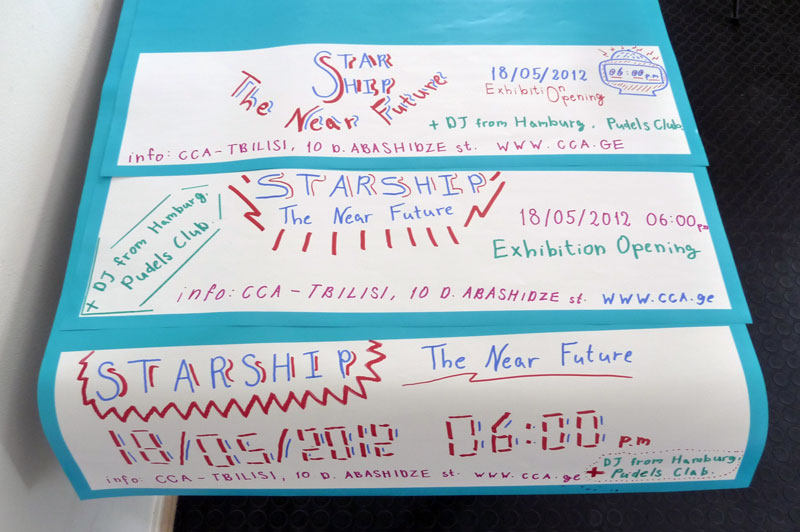 STAR
SHIP
The Near Future
18/05/2012
06:00 p.m
Exhibition
Opening
+ DJ from Hamburg. Pudels Club.
info: CCA-TBILISI, 10 D. ABASHIDZE st. WWW.CCA.GE
+ DJ from Hamburg.
Pudels Club.
STARSHIP
The Near Future
18/05/2012 06:00 pm
Exhibition Opening
info: CCA-TBILISI, 10 D. ABASHIDZE st. WWW.CCA.ge
STARSHIP
The Near Future
18/05/2012 06:00 p.m
info: CCA-TBILISI, 10 D. ABASHIDZE st. WWW.CCA.ge
+ DJ from Hamburg.
Pudels Clab.